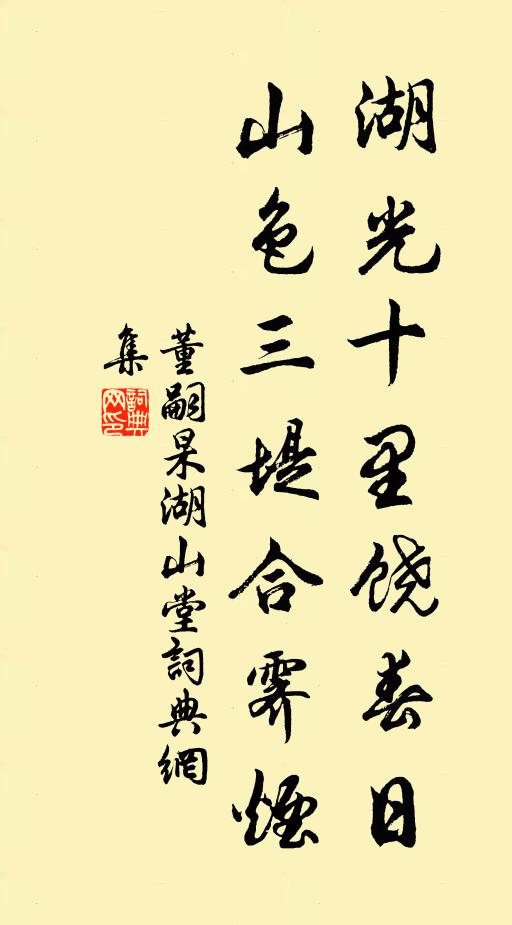 湖光十里饶春日
山色三堤合霁煙
董嗣杲湖山堂詞典網
集
詞典網印